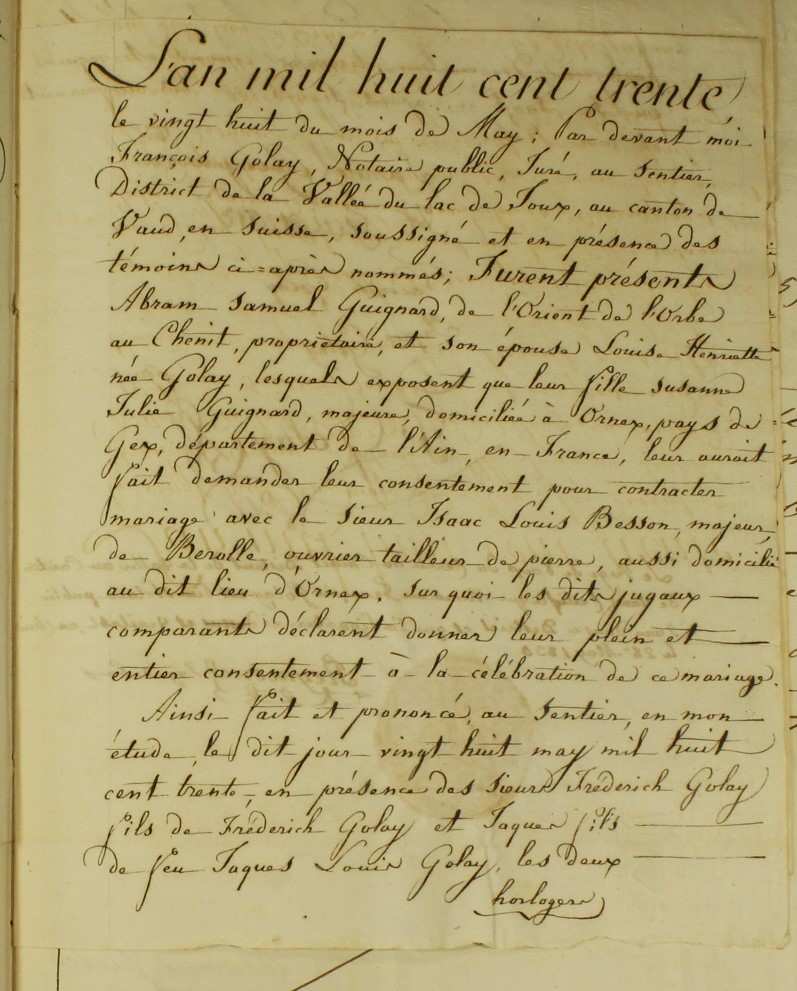 L'an mil huit cent trente
le vingt huit du mois de May; Par devant moi
François Golay, Notaire public, Juré, au Sentier,
District de la Vallée du lac de Joux, au canton de
Vaud, en Suisse, soussigné et en présence des
témoins ci=après nommés; Furent présents
Abram Samuel Guignard, de l'Orient de l'Orbe
au Chenit, propriétaire, et son épouse Louise Henriette
née Golay, lesquels exposent que leur fille Susanne
Julie Guignard, majeure, domiciliée à Ornex, pays de
Gex, département de l'Ain, en France, leur auroit
fait demander leur consentement pour contracter
mariage avec le Sieur Isaac Louis Besson, majeur,
de Berolle, ouvrier tailleur de pierre, aussi domicilié
au dit lieu d'Ornex. Sur quoi les dits jugaux
comparants déclarent donner leur plein et
entier consentement à la célébration de ce mariage.
Ainsi fait et prononcé, au Sentier, en mon
étude, le dit jour vingt huit may mil huit
cent trente, en présence des Sieurs Fréderich Golay
fils de Fréderich Golay et Jaques fils
de feu Jaques Louis Golay, les deux
horlogers